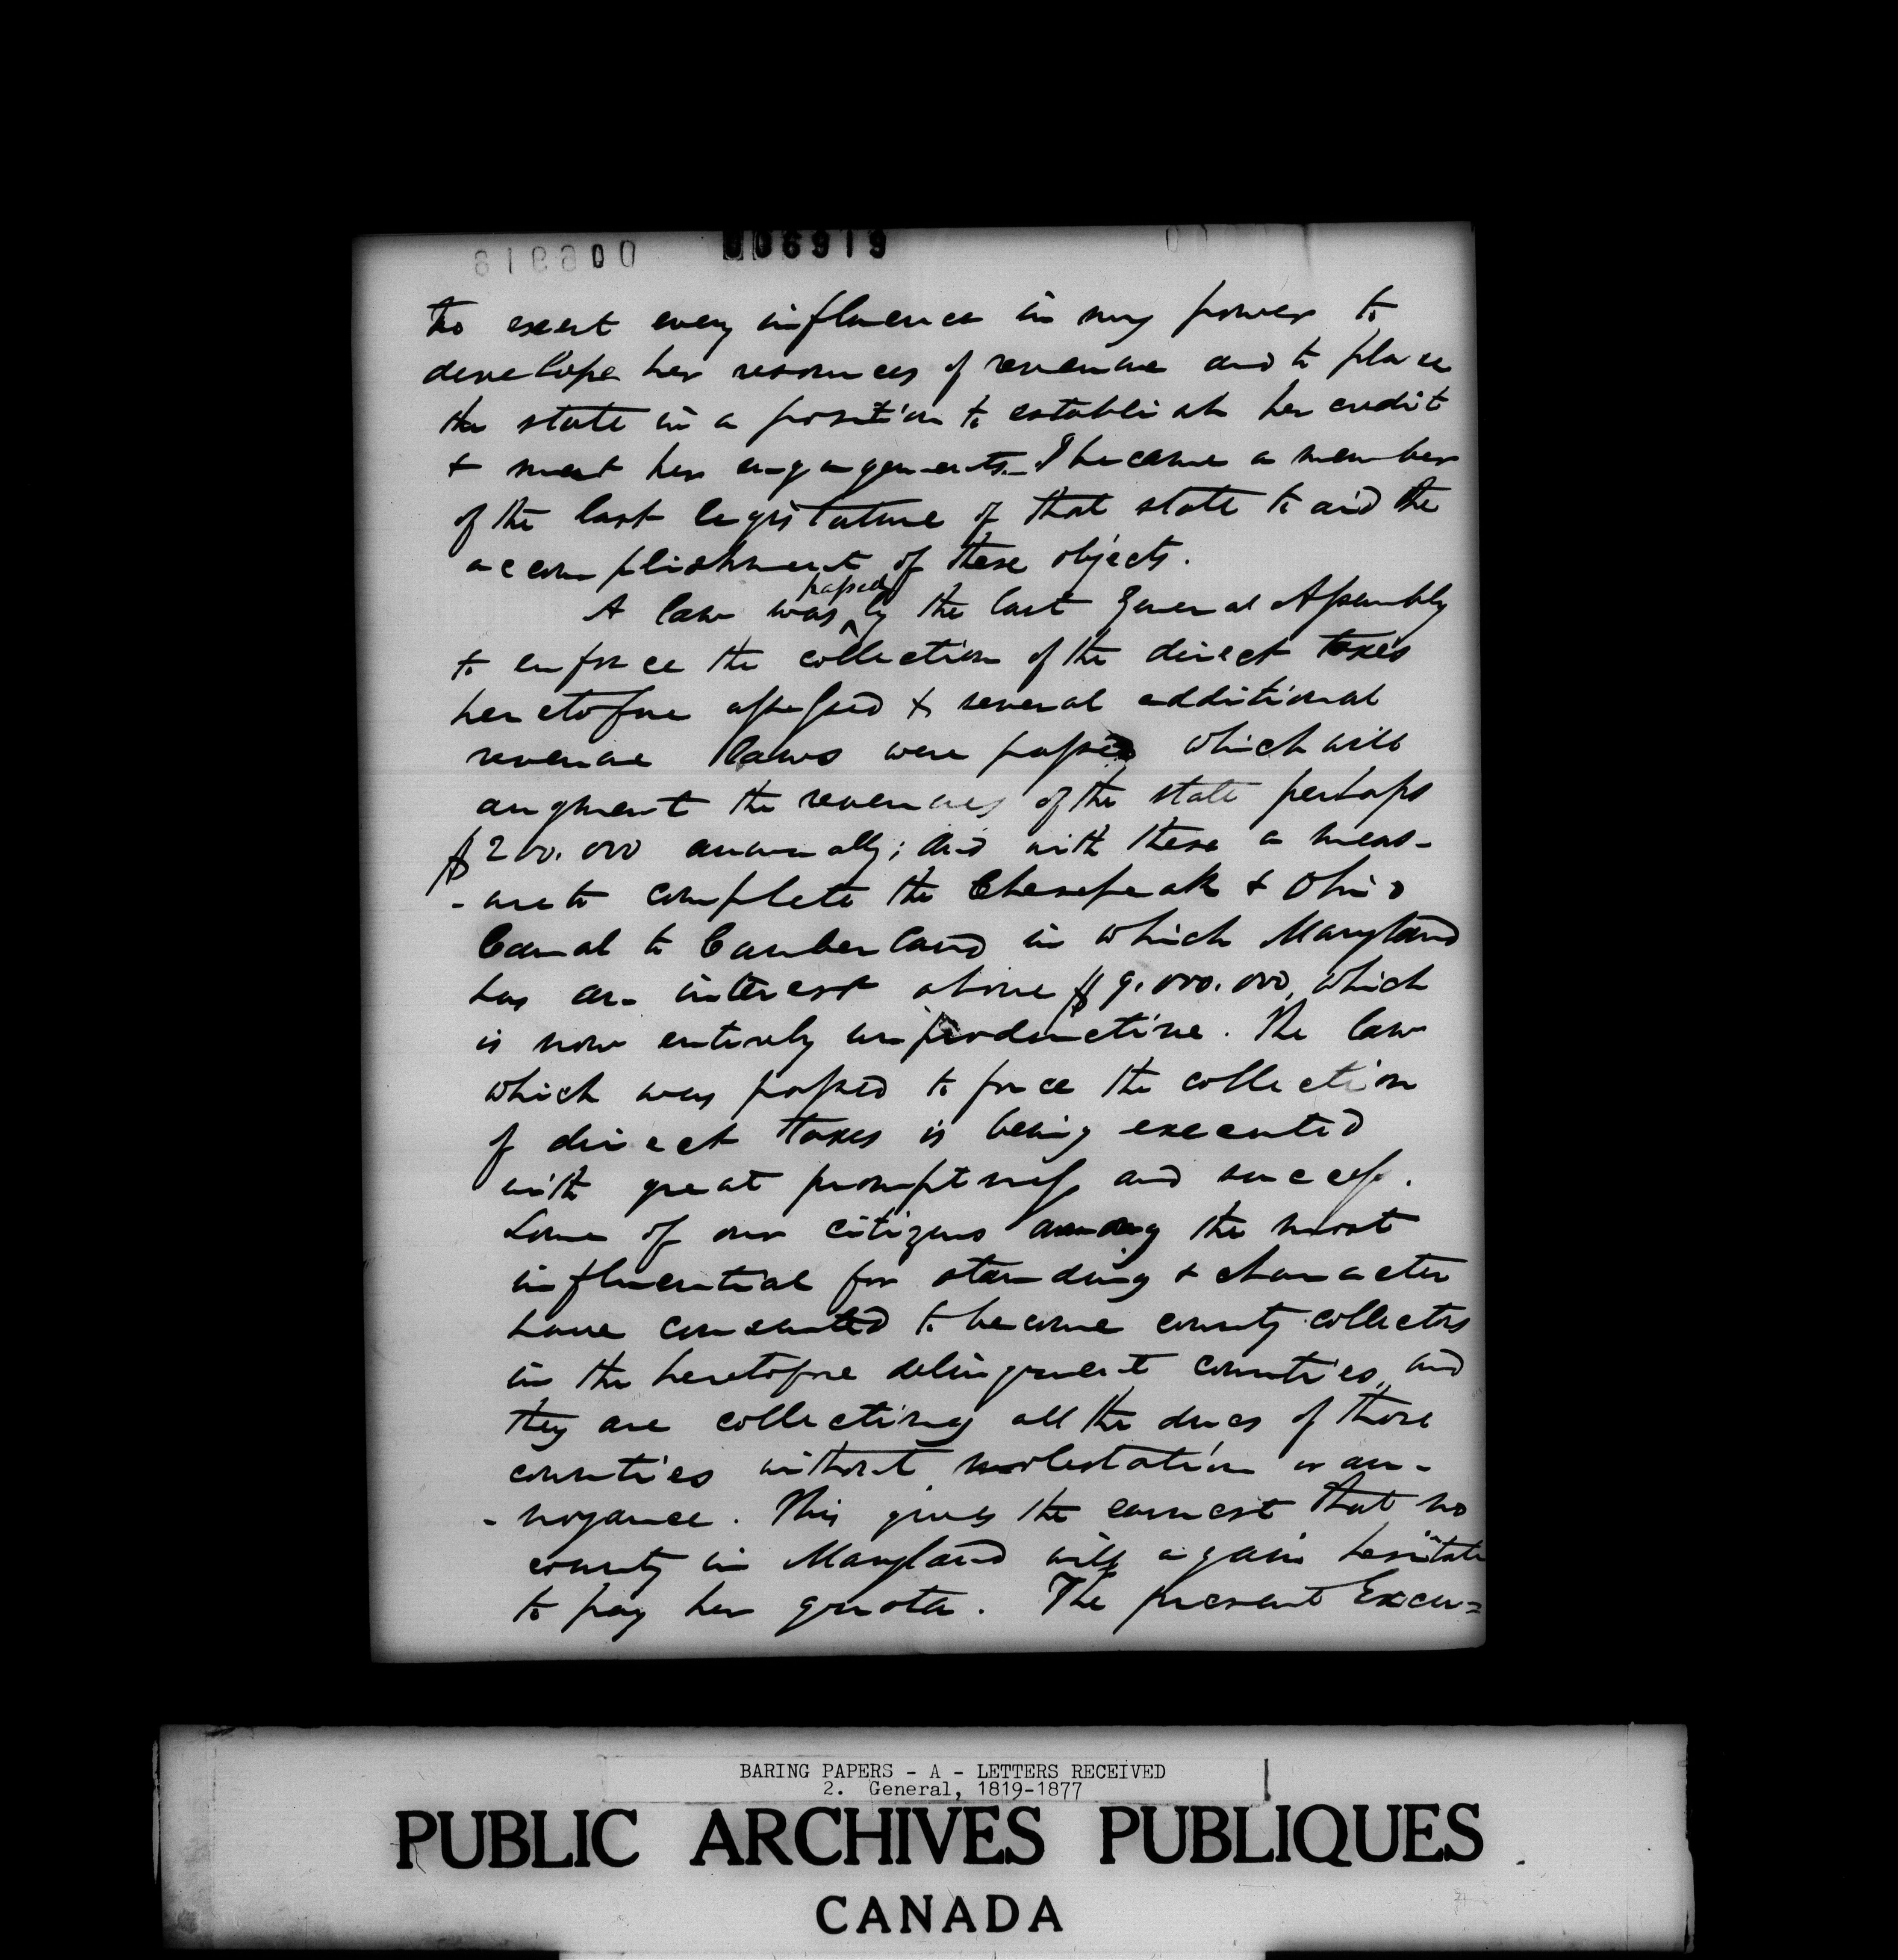 006919
to exert every influence in my power to
develope her resources of revenue and to place
the state in a position to establish her credit
& meet her engagements. I became a member
of the last legislature of that state to aid the
accomplishment of these objects.
passed
A law was ^ by the last General Assembly
to enforce the collection of the direct taxes
heretofore assessed & several additional
revenue laws were passed which will
augment the revenues of the state perhaps
$200.000 annually; and with these a meas-
-ure to complete the Chesepeak & Ohio
Canal to Cumberland in which Maryland
has an interest above $9.000.000, which
is now entirely unproductive. The law
which was passed to force the collection
of direct taxes is being executed
with great promptness and success.
Some of our citizens among the most
influential for standing & character
have consented to become county collectors
in the heretofore delinquent counties, and
they are collecting all the dues of those
counties without molestation or an-
-noyance. This gives the earnest that no
county in Maryland will again hesitate
to pay her quota. The present Execu=
BARING PAPERS - A - LETTERS RECEIVED
2. General, 1819-1877
PUBLIC ARCHIVES PUBLIQUES
CANADA